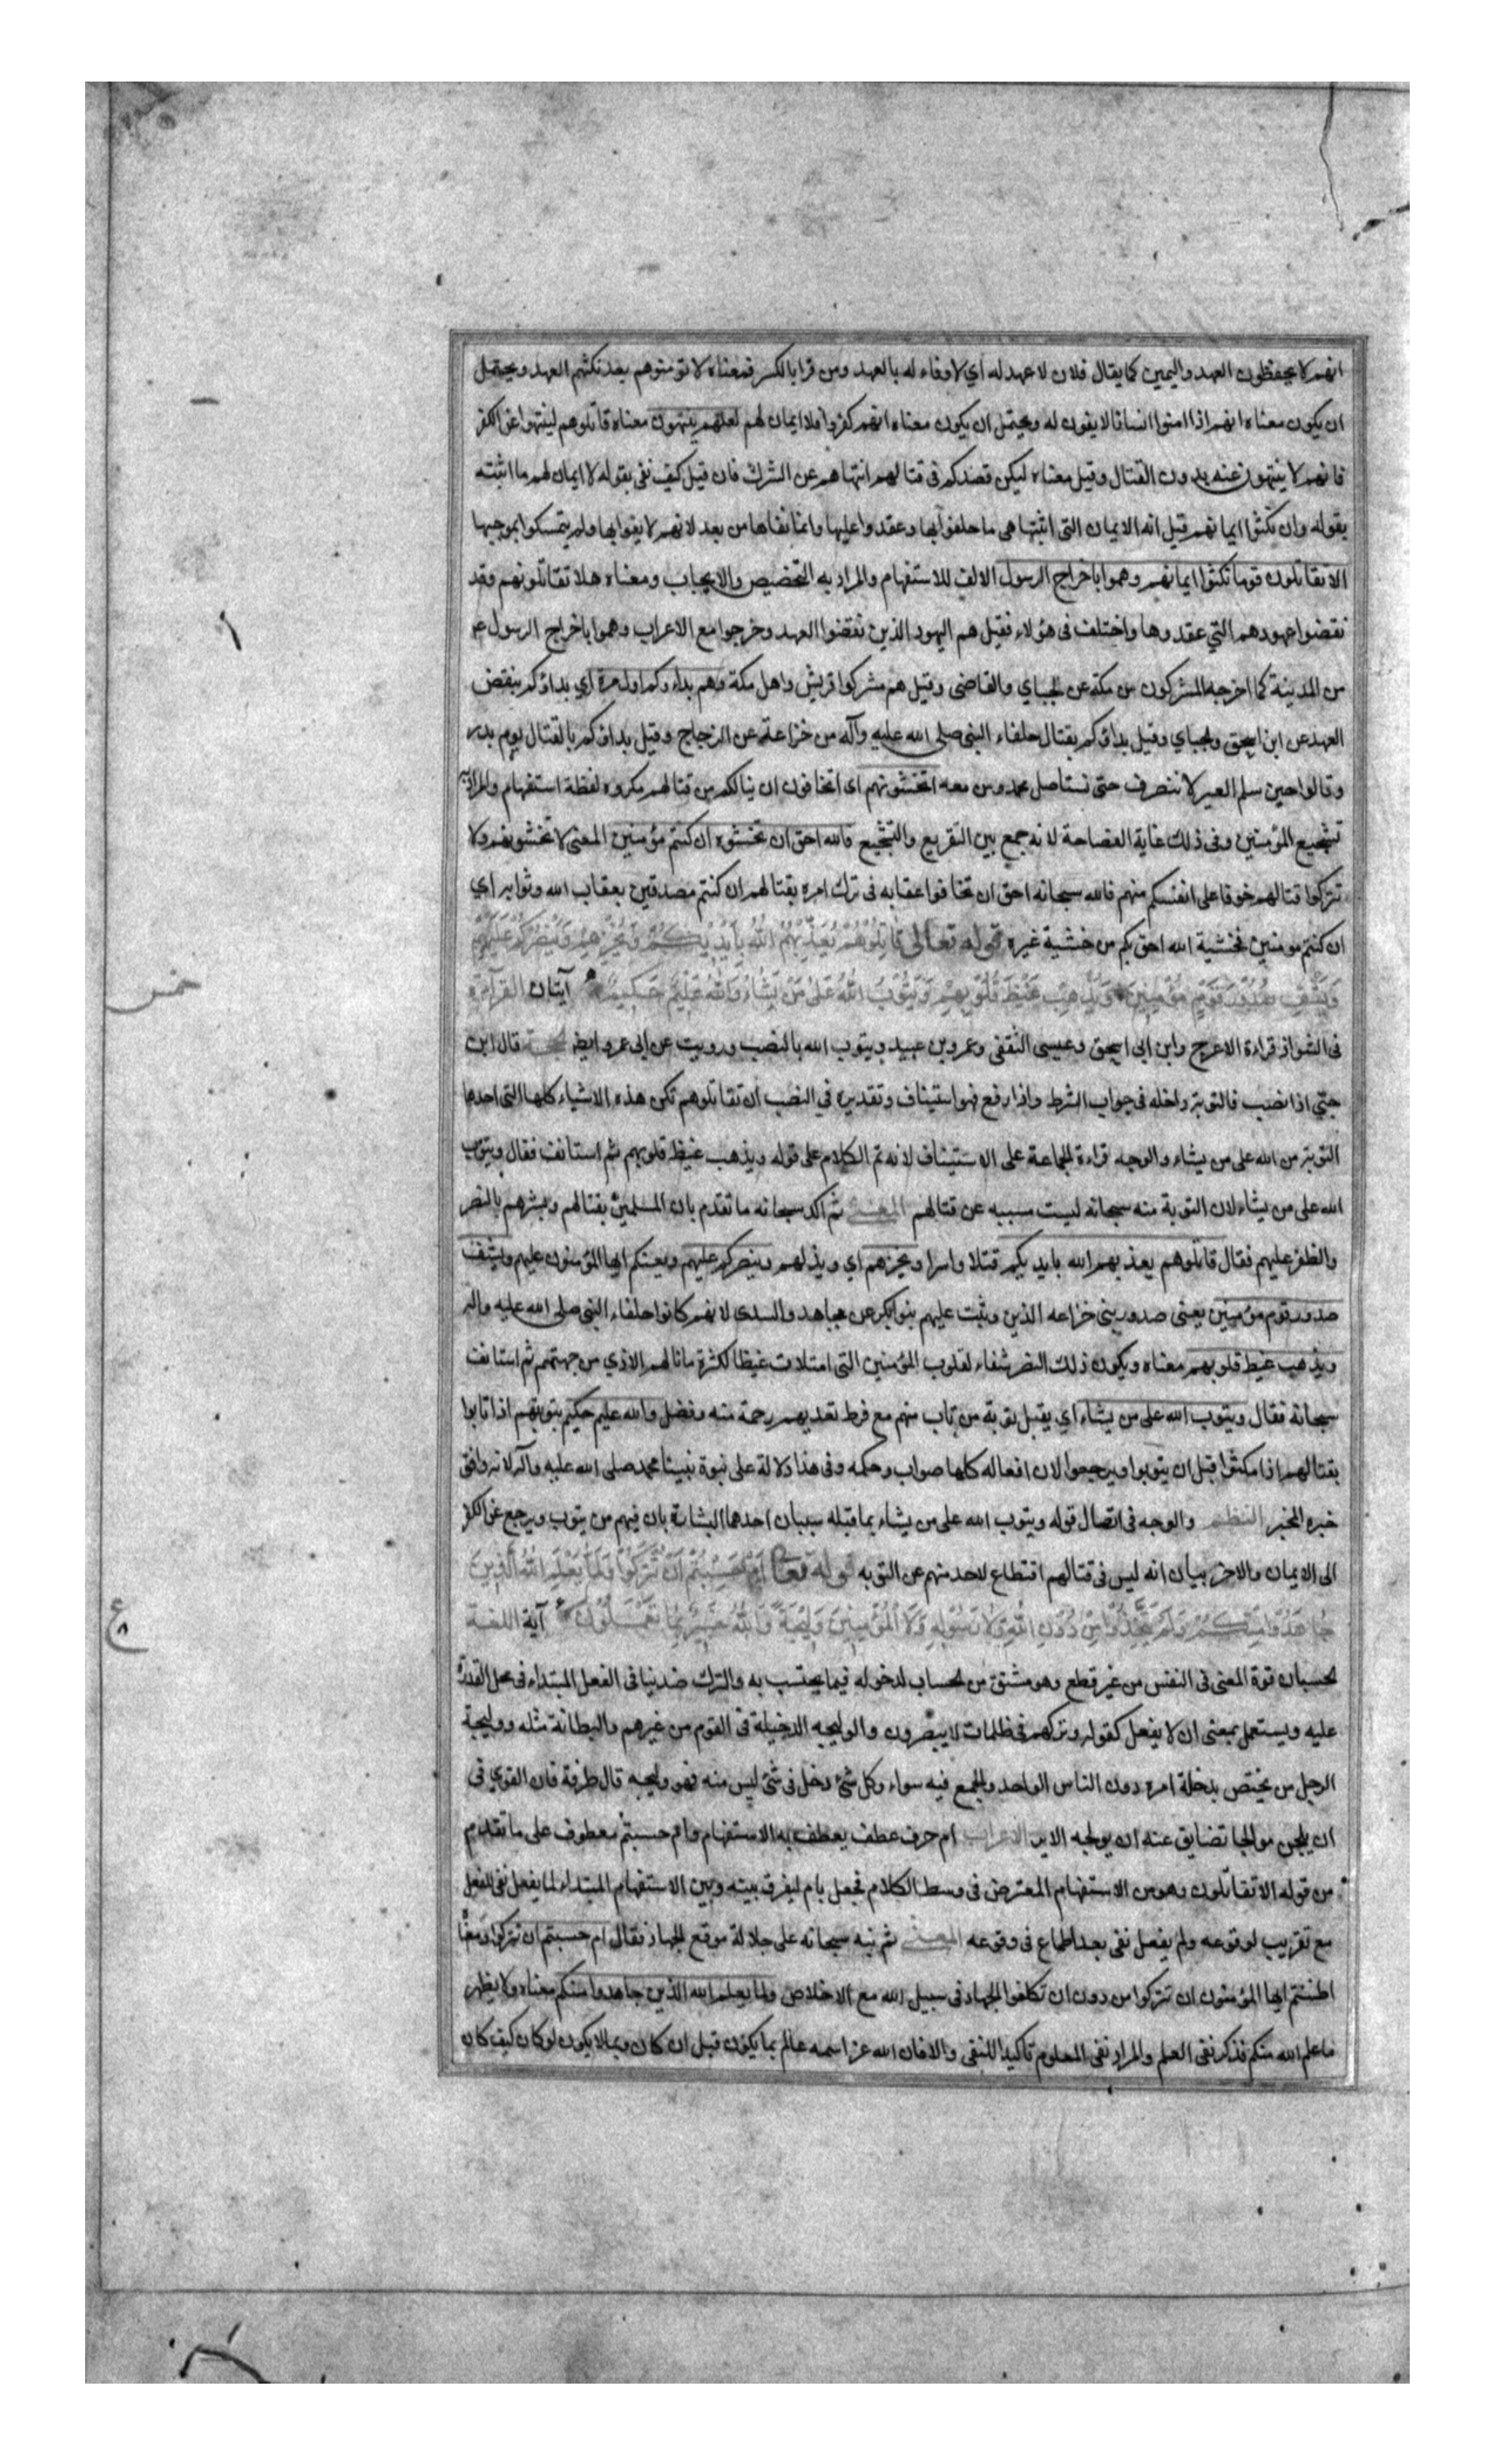 انهم لا يحفظون العهد واليمين كما يقال فلان لا عهد له أي لا وفاء له بالعهد ومن قرا بالكسر فمعناه لا تومنوهم بعد نكثهم العهد ويحتمل
ان يكون معناه انهم اذا امنوا انسانا لا يفون له ويحتمل ان يكون معناه انهم كفروا فلا ايمان لهم لعلهم ينتهون معناه قاتلوهم لينتهوا عن الكفر
فانهم لا ينتهون عنه بدون القتال وقيل معناه ليكن قصدكم فى قتالهم انتهاهم عن الشرك فان قيل كيف نفى بقوله لا ايمان لهم ما اثبته
بقوله وان نكثوا ايمانهم قيل انه الايمان التى اثبتها هى ما حلفوا بها وعقدوا عليها وانما نفاها من بعد لانهم لا يفوا بها ولم يتمسكوا بموجبها
الا تقاتلون قوما نكثوا ايمانهم وهموا باخراج الرسول الالف للاستفهام والمراد به التحضيض والايجاب ومعناه هلا تقاتلونهم وقد
نقضوا عهودهم التي عقدوها واختلف فى هؤلاء فقيل هم اليهود الذين نقضوا العهد وخرجوا مع الاعراب وهموا باخراج الرسول ع
من المدينة كما اخرجه المشركون من مكة عن الجباي والقاضى وقيل هم مشركوا قريش واهل مكة وهم بداوكم اول مرة اي بداؤكم بنقض
العهد عن ابن اسحق والجباي وقيل بداؤكم بقتال حلفاء النبى صلى الله عليه وآله من خزاعة عن الزجاج وقيل بداؤكم بالقتال يوم بدر
وقالوا حين سلم العير لا ننصرف حتى نستاصل محمد ومن معه اتخشونهم اى اتخافون ان ينالكم من قتالهم مكروه لفظة استفهام والمراد به
تشجيع المؤمنين وفى ذلك غاية الفصاحة لانه جمع بين التقريع والتشجيع فالله احق ان تخشوه ان كنتم مؤمنين المعنى لا تخشوهم ولا
تتركوا قتالهم خوفا على انفسكم منهم فالله سبحانه احق ان تخافوا عقابه فى ترك امره بقتالهم ان كنتم مصدقين بعقاب الله وثوابه اي
ان كنتم مومنين فخشية الله احق بكم من خشية غيره قوله تعالى قَاتِلُوهُمْ يُعَذِّبْهُمُ اللهُ بِأَيْدِيكُمْ وَيُخْزِهِمْ وَيَنْصُرْكُمْ عَلَيْهِمْ
وَيَشْفِ صُدُورَ قَوْمٍ مُؤْمِنِينَ وَيُذْهِبْ غَيْظَ قُلُوبِهِمْ وَيَتُوبُ اللهُ عَلَىٰ مَنْ يَشَاءُ وَاللهُ عَلِيمٌ حَكِيمٌ آيتان القراءة
فى الشواذ قراءة الاعرج وابن ابى اسحق وعيسى الثقفى وعمرو بن عبيد ويتوب الله بالنصب ورويت عن ابى عمرو ايضا الحجة قال ابن
جنّي اذا نصب فالتوبة داخله فى جواب الشرط واذا رفع فهو استيناف وتقديره في النصب ان تقاتلوهم تكن هذه الاشياء كلها التى احدها
التوبة من الله على من يشاء والوجه قراءة الجماعة على الاستيناف لانه تم الكلام على قوله ويذهب غيظ قلوبهم ثم استانف فقال ويتوب
الله على من يشاء لان التوبة منه سبحانه ليست مسببه عن قتالهم المعنى ثم اكد سبحانه ما تقدم بان المسلمين بقتالهم وبشرهم بالنصر
والظفر عليهم فقال قاتلوهم يعذبهم الله بايديكم قتلا واسرا ويخزهم اي ويذلهم وينصركم عليهم ويعينكم ايها المؤمنون عليهم ويشف
صدور قوم مؤمنين يعنى صدور بنى خزاعه الذين وثبت عليهم بنوا بكر عن مجاهد والسدى لانهم كانوا حلفاء النبى صلى الله عليه واله
ويذهب غيظ قلوبهم معناه ويكون ذلك النصر شفاء لقلوب المؤمنين التى امتلات غيظا لكثرة ما نالهم الاذي من جهتهم ثم استانف
سبحانه فقال ويتوب الله على من يشاء اي يقبل توبة من تاب منهم مع فرط تعديهم رحمة منه وفضل والله عليم حكيم بتوبتهم اذا تابوا
بقتالهم اذا نكثوا قبل ان يتوبوا ويرجعوا لان افعاله كلها صواب وحكمه وفى هذا دلالة على نبوة نبينا محمد صلى الله عليه وآله لانه وافق
خبره المخبر النظم والوجه فى اتصال قوله ويتوب الله على من يشاء بما قبله سببان احدهما البشارة بان فيهم من يتوب ويرجع عن الكفر
الى الايمان والاخر بيان انه ليس فى قتالهم اقتطاع لاحد منهم عن التوبه قوله تعالى أَمْ حَسِبْتُمْ أَنْ تُتْرَكُوا وَلَمَّا يَعْلَمِ اللهُ الَّذِينَ
جَاهَدُوا مِنْكُمْ وَلَمْ يَتَّخِذُوا مِنْ دُونِ اللهِ وَلَا رَسُولِهِ وَلَا الْمُؤْمِنِينَ وَلِيجَةً وَاللهُ خَبِيرٌ بِمَا تَعْمَلُونَ آية اللغة
الحسبان قوة المعنى فى النفس من غير قطع وهو مشتق من الحساب لدخوله فيما يحتسب به والترك ضد ينافى الفعل المبتداء فى محل القدرة
عليه ويستعمل بمعنى ان لا يفعل كقوله وتركهم فى ظلمات لا يبصرون والوليجه الدخيلة فى القوم من غيرهم والبطانة مثله ووليجة
الرجل من يختص بدخلة امره دون الناس الواحد والجمع فيه سواء وكل شئ دخل فى شئ ليس منه فهو وليجه قال طرفة فان القوي فى
ان يلجن موالجا تضايق عنه ان يولجه الابر الاعراب ام حرف عطف يعطف به الاستفهام وام حسبتم معطوف على ما تقدم
من قوله الا تقاتلون وهو من الاستفهام المعترض فى وسط الكلام فجعل بام ليفرق بينه وبين الاستفهام المبتداء لما يفعل نفى للفعل
مع تقريب لوقوعه ولم يفعل نفى بعد اطماع فى وقوعه المعنى ثم نبه سبحانه على جلالة موقع الجهاد فقال ام حسبتم ان تتركوا ومعناه
اظننتم ايها المؤمنون ان تتركوا من دون ان تكلفوا الجهاد فى سبيل الله مع الاخلاص ولما يعلم الله الذين جاهدوا منكم معناه ولا يظهر
ما علم الله منكم فذكر نفى العلم والمراد نفى المعلوم تاكيدا للنفى والا فان الله عز اسمه عالم بما يكون قبل ان كان وبما لا يكون لو كان كيف كان
خمس
ع